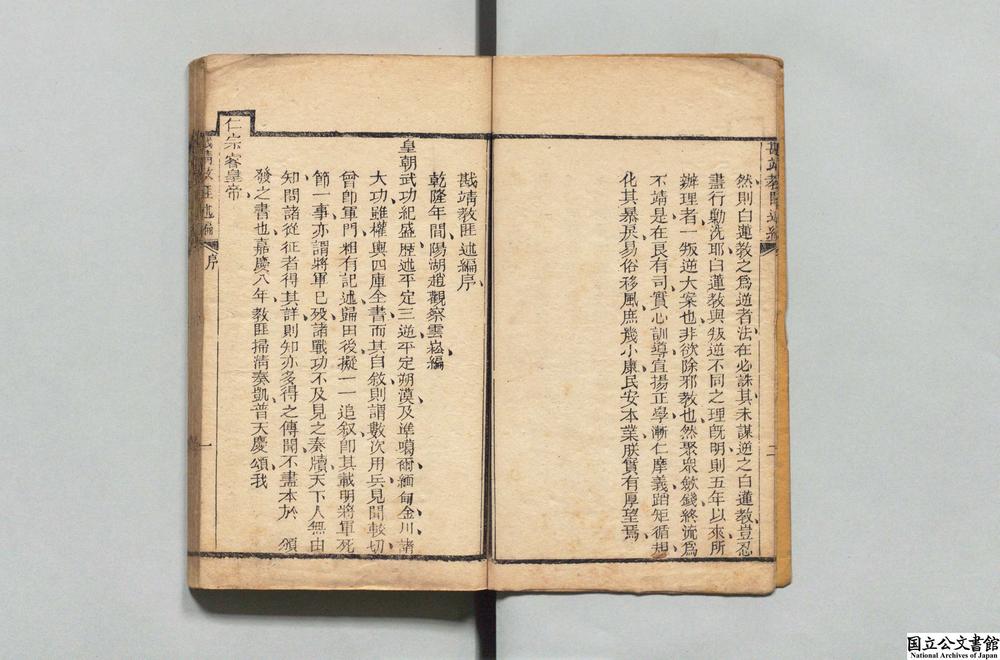 然則白蓮教之爲逆者法在必誅其未謀逆之白蓮教豈忍
盡行勦洗耶白蓮教與叛逆不同之理既明則五年以來所
辦理者一叛逆大案也非欲除邪教也然聚衆斂錢終流爲
不靖是在良有司實心訓導宣揚正學漸仁摩義蹈矩循規
化其暴戾易俗移風庶幾小康民安本業朕實有厚望焉
戡靖教匪述編序
乾隆年間陽湖趙觀察雲崧編
皇朝武功紀盛歷述平定三逆平定朔漠及準噶爾緬甸金川諸
大功雖權輿四庫全書而其自敘則謂數次用兵見聞較切
曾卽軍門粗有記述歸田後擬一一追叙卽其載明將軍死
節一事亦謂將軍已殁諸戰功不及見之奏牘天下人無由
知問諸從征者得其詳則知亦多得之傳聞不盡本於 頒
發之書也嘉慶八年教匪掃淸奏凱普天慶頌我
仁宗睿皇帝
戡靖教匪述編 序 一
戡靖教匪述編 二
国立公文書館
National Archives of Japan